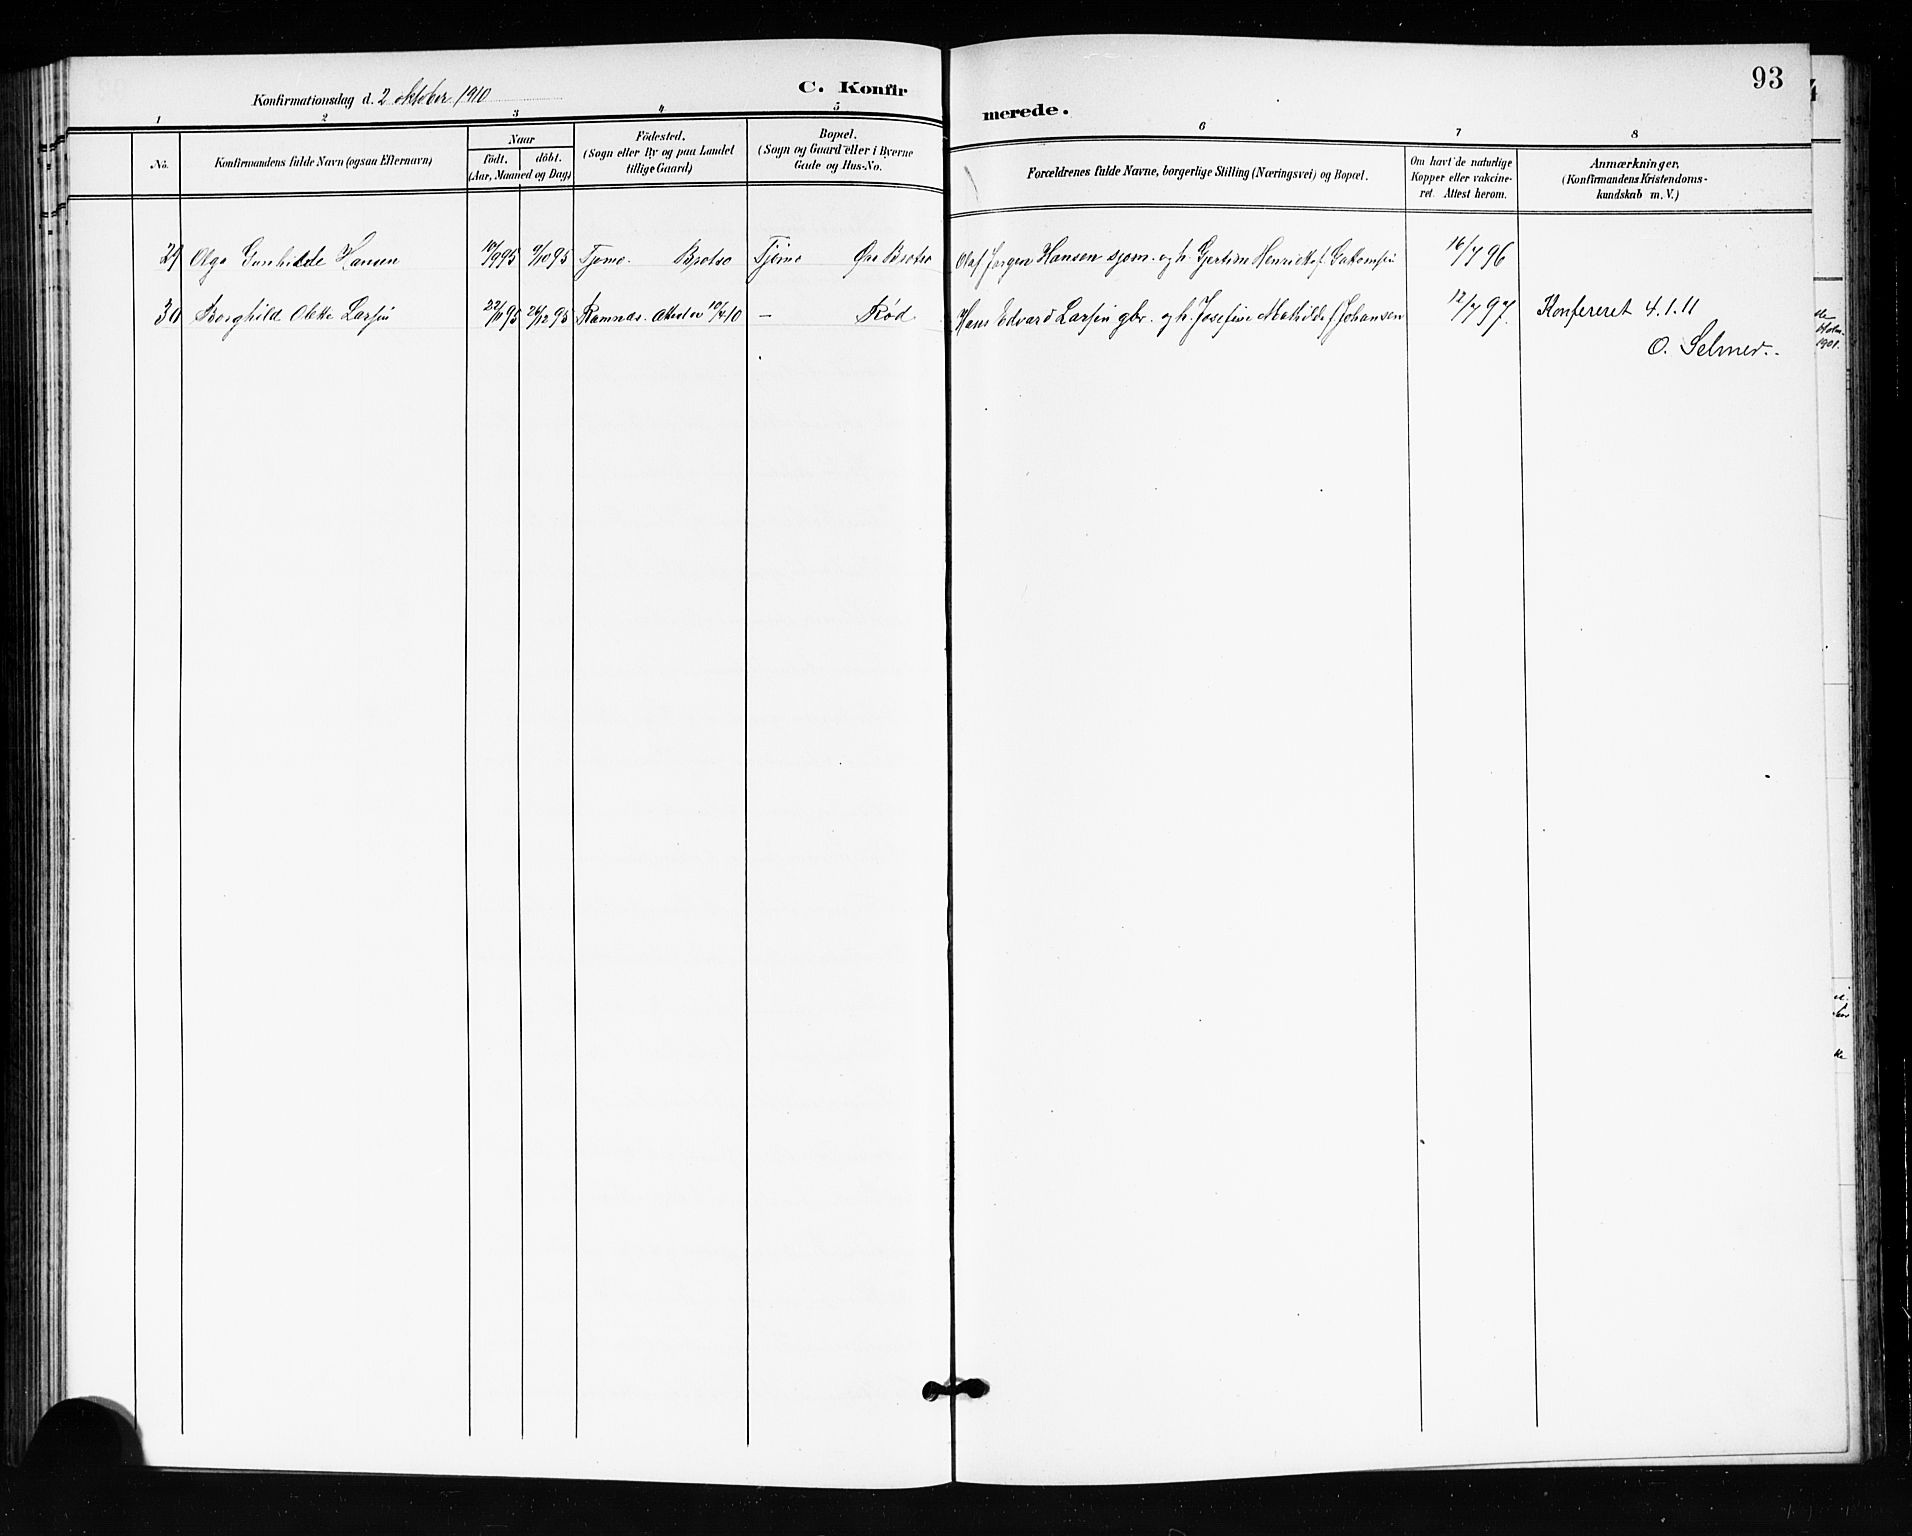 Konfirmationsdag d. 2 oktober 1910
C. Konfirmerede.
93
1 2 3 4 5 6 7 8
No.
Konfirmandens fulde Navn (ogsaa Efternavn)
Naar
födt. döbt.
(Aar, Maaned og Dag)
Födested.
(Sogn eller By og paa Landet
tillige Gaard)
Bopæl.
(Sogn og Gaard eller i Byerne
Gade og Hus-No.
Forældrenes fulde Navne, borgerlige Stilling (Næringsvei) og Bopæl.
Om havt de naturlige
Kopper eller vakcine-
ret. Attest herom.
Anmærkninger,
(Konfirmandens Kristendoms-
kundskab m. V.)
29 Olga Gunhilde Hansen 10/9 95 9/10 95 Tjømo. Brotsø Tjømo Øvre Brotsø Olaf Jørgen Hansen sjøm. og h. Gjertine Henriette f. 16/7 96
30 Borghild Olette Larsen 22/11 95 26/12 95 Ramnæs. Attest av 10/4 10 — Rød Hans Edvard Larsen gbr. og h. Josefine Mathilde f. Johansen 12/7 97. Konfereret 4.1.11
O. Selmer.